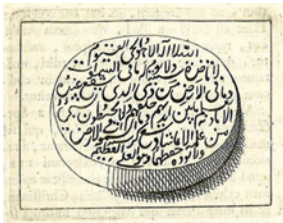 الله لا اله الا هو الحي القيوم
لا تاخذه سنة ولا نوم له ما في السموات
وما في الارض من ذي الذي يشفع عنده
الا باذنه يعلم ما بين ايديهم وما خلفهم ولا يحيطون بشي
من علمه الا بما شا وسع كرسيه السموات والارض
ولا يوده حفظهما وهو العلي العظيم